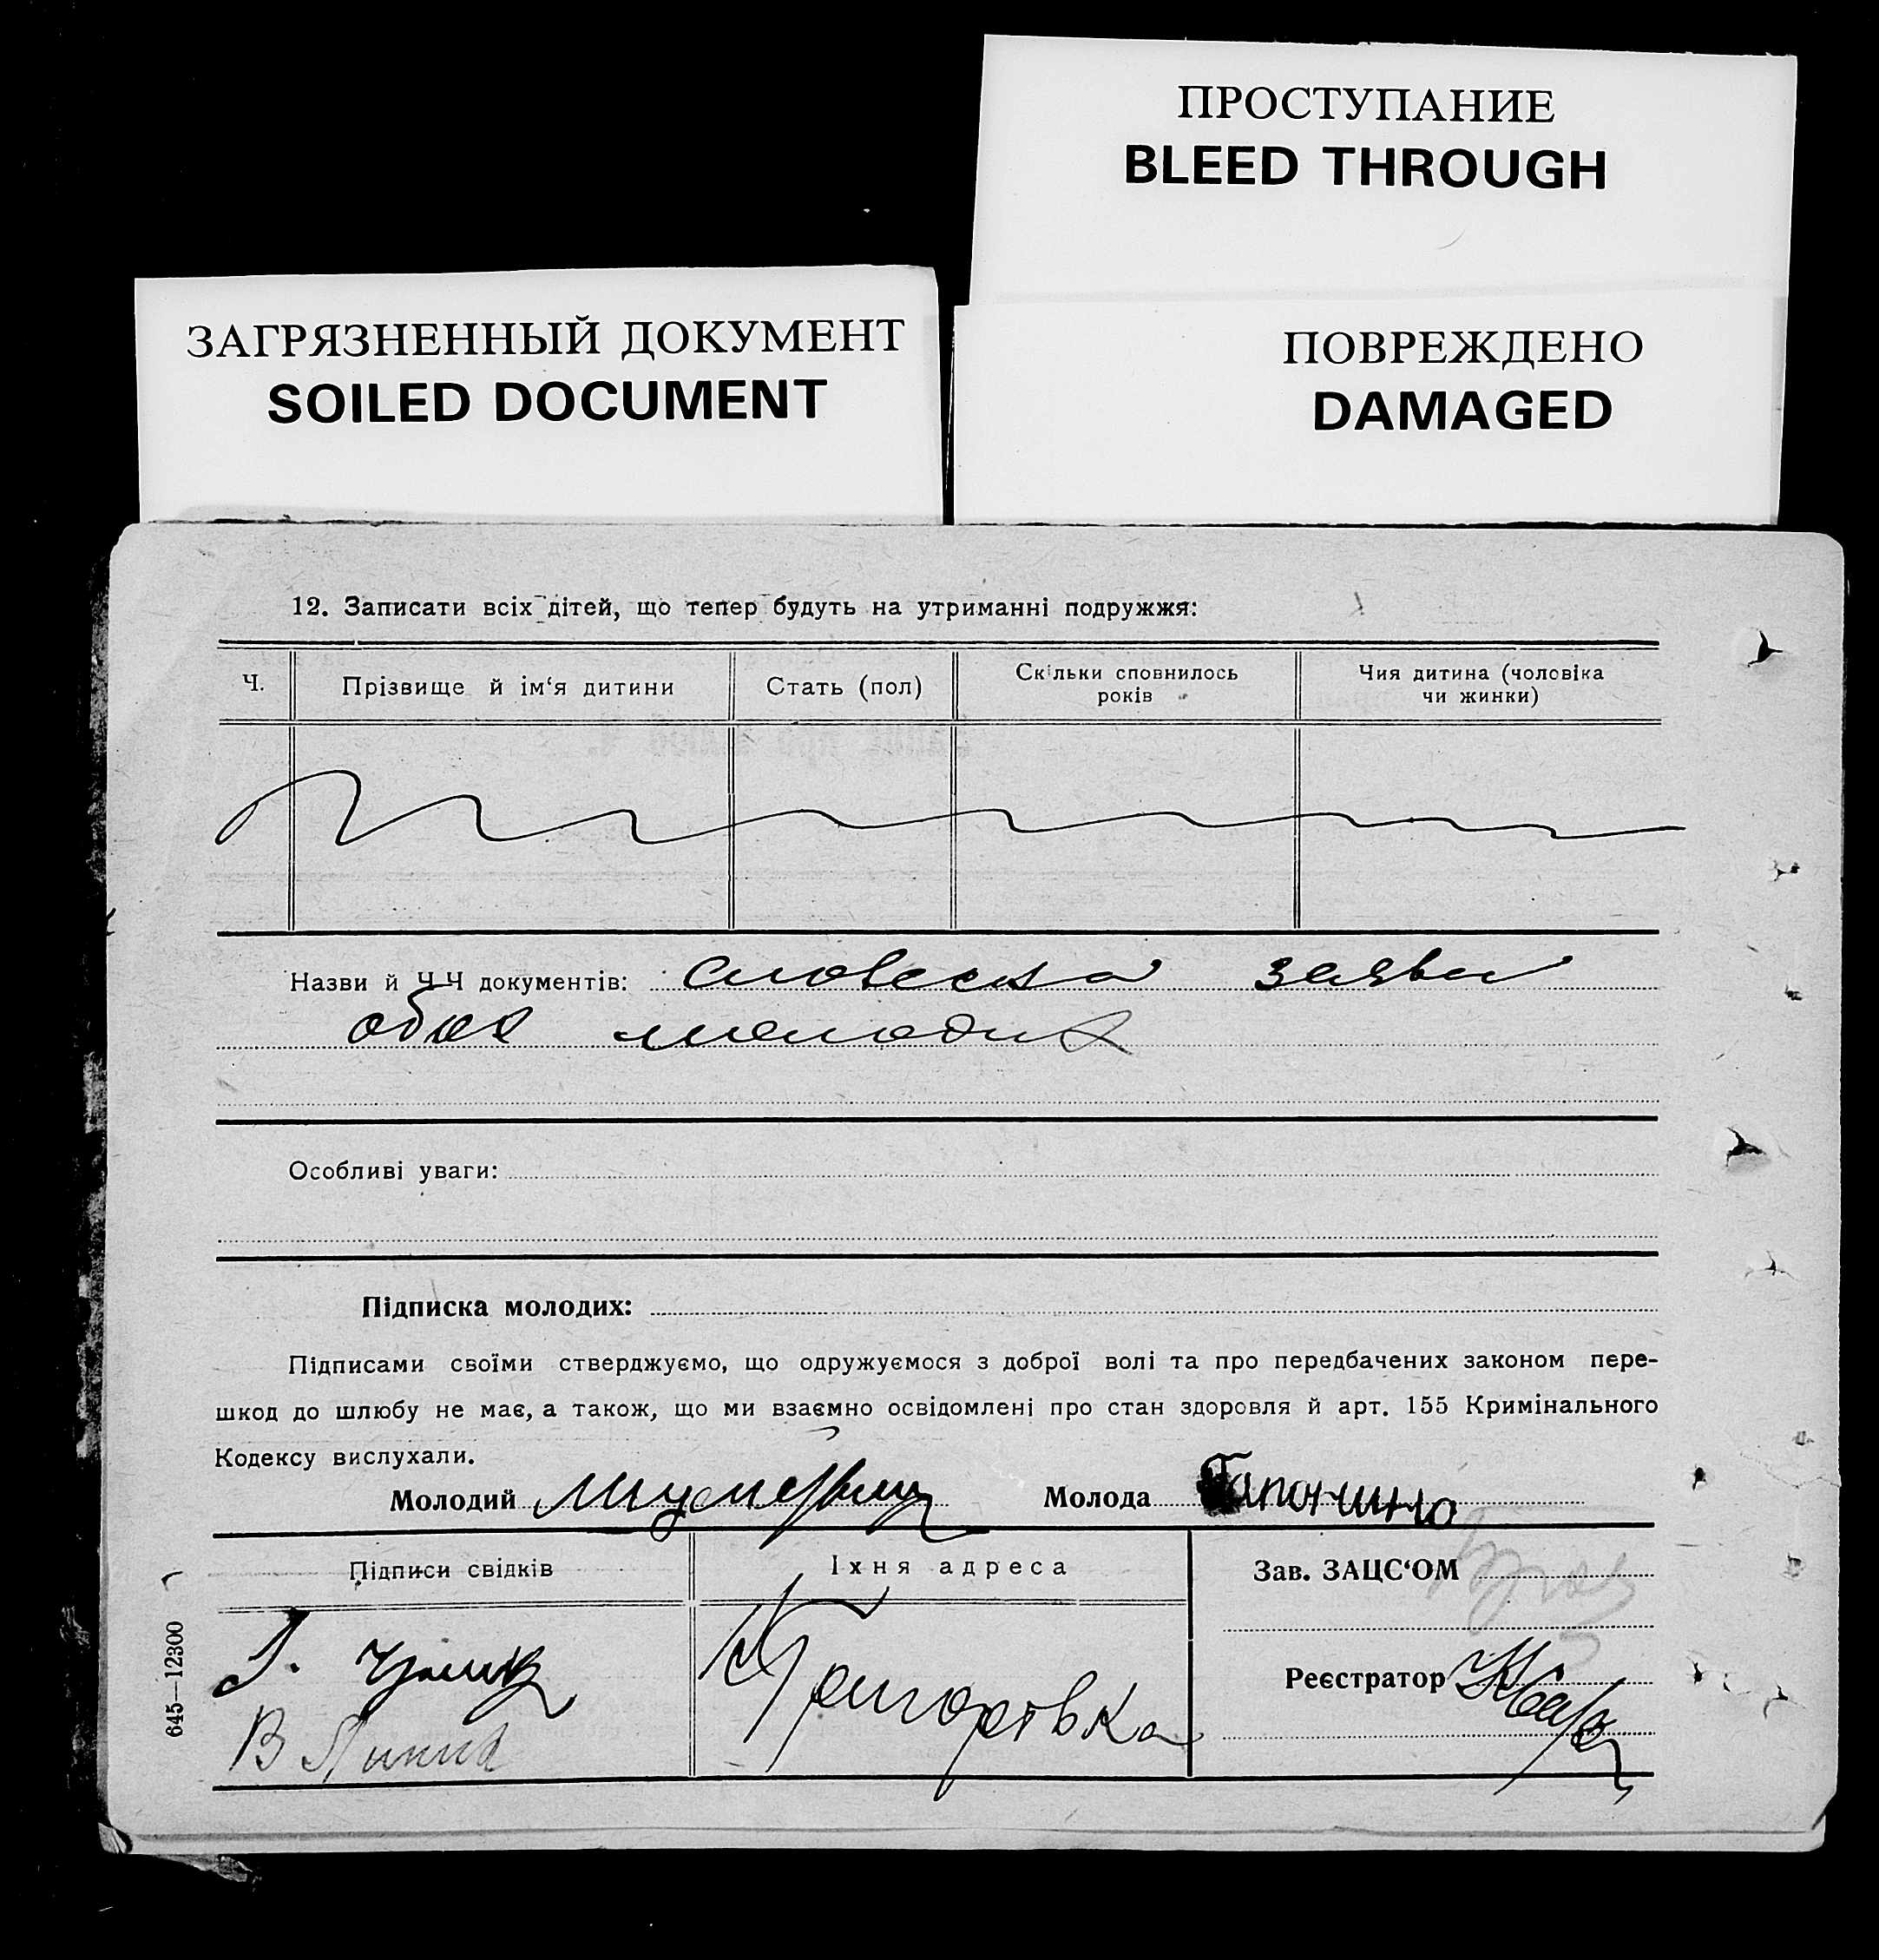 ПРОСТУПАНИЕ
BLEED THROUGH
ЗАГРЯЗНЕННЫЙ ДОКУМЕНТ
SOILED DOCUMENT
ПОВРЕЖДЕНО
DAMAGED
12. Записати всіх дітей, що тепер будуть на утриманні подружжя:
Ч.
Прізвище й ім‘я дитини
Стать (пол)
Скільки сповнилось
років
Чия дитина (чоловіка
чи жинки)
Назви й Ч.Ч документів: словесна заява
обох молодих
Особливі уваги:
Підписка молодих:
Підписами своїми стверджуємо, що одружуємося з доброї волі та про передбачених законом пере-
шкод до шлюбу не має, а також, що ми взаємно освідомлені про стан здоровля й арт. 155 Кримінального
Кодексу вислухали.
Молодий
Молода
Підписи свідків
Їхня адреса
Зав. ЗАЦС‘ОМ
Григоровка
Реєстратор
645—12300